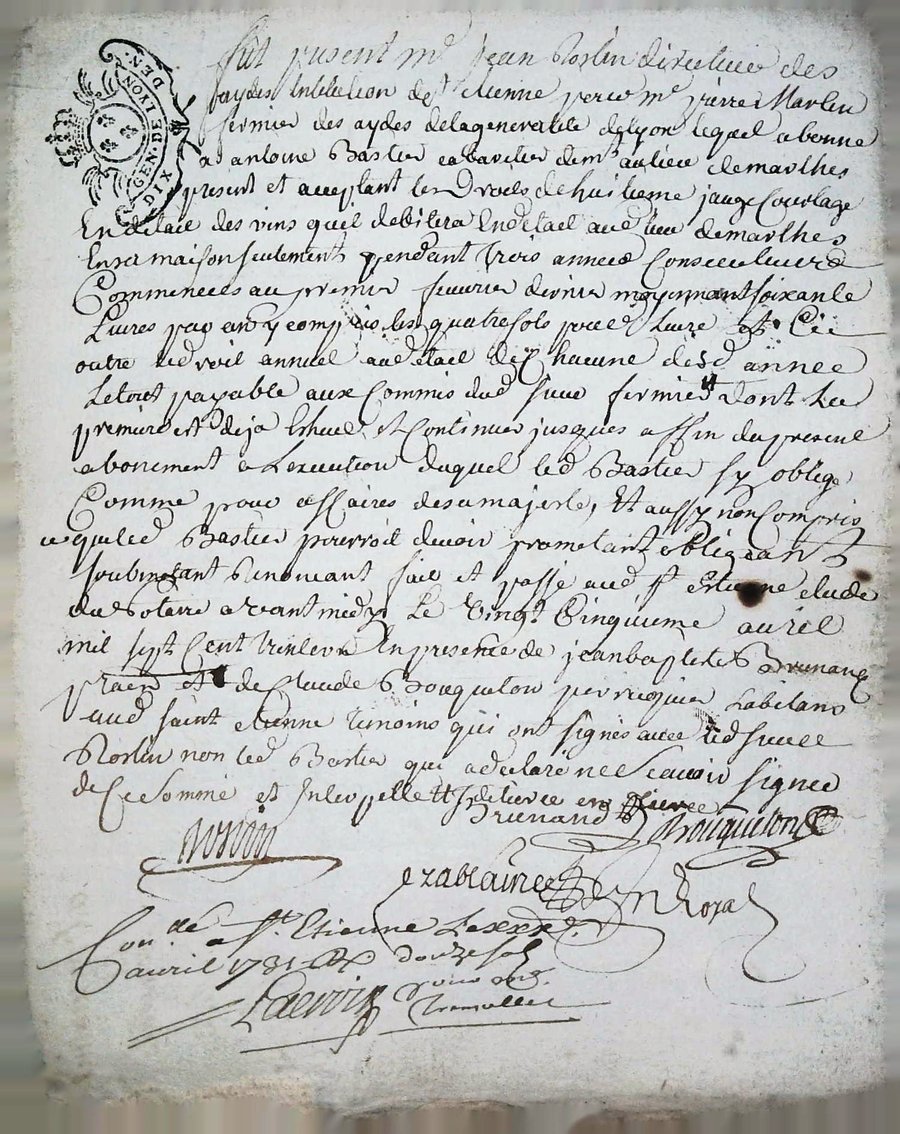 GEN. DE LYON
DIX DEN.
fut présent Mr Jean Rorlin directeur des
aydes En lElection de St Etienne pour Mr pierre Martin
fermier des aydes de la generallité de lyon lequel a bonné
a antoine Bastier cabaretier demt au lieu de marlhes
present et acceptant les Droits de huitieme jauge Courtage
En détail des vins quil debitera En détail aud lieu de marlhes
En sa maison seulement pendant trois années Consecutives
Commencées au premier feuvrier dernier moyennant soixante
Livres par an y compris les quatre sols pour Livre et Ce
outre le droit annuel aud détail de Chacune desd année
Le tout payable aux Commis dud sieur fermier dont Le
premier est deja Echeu et Continuer jusques a fin du present
abonement a Lexecution duquel led Bastier sy oblige
Comme pour affaires de sa majesté, Et aussy non Compris
ce que led Bastier pourroit devoir prometant obligeant
soubmetant Renoncant fait et passé aud St Estienne etude
du Notaire avant midy Le Vingt Cinquieme avril
mil sept Cent trente un En presence de jean baptiste Brunand
pratn et de Claude Bouqueton perruquier habitans
aud saint etienne temoins qui ont signés avec led sieur
Rorlin non led Bastier qui a declaré ne Scavoir signer
de Ce Sommé et Interpellé
Brunand Bouqueton
Rorlin
Con.lé a St. Etienne Le xxx
avril 1731 douze sols